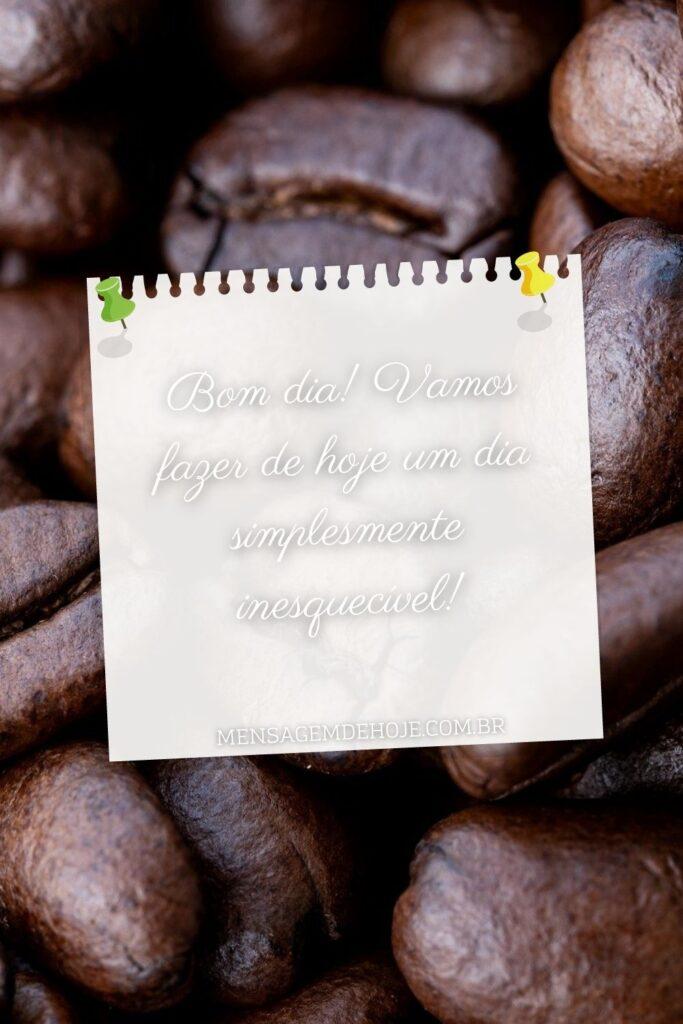 Bom dia! Vamos
fazer de hoje um dia
simplesmente
inesquecível!
MENSAGEMDEHOJE.COM.BR